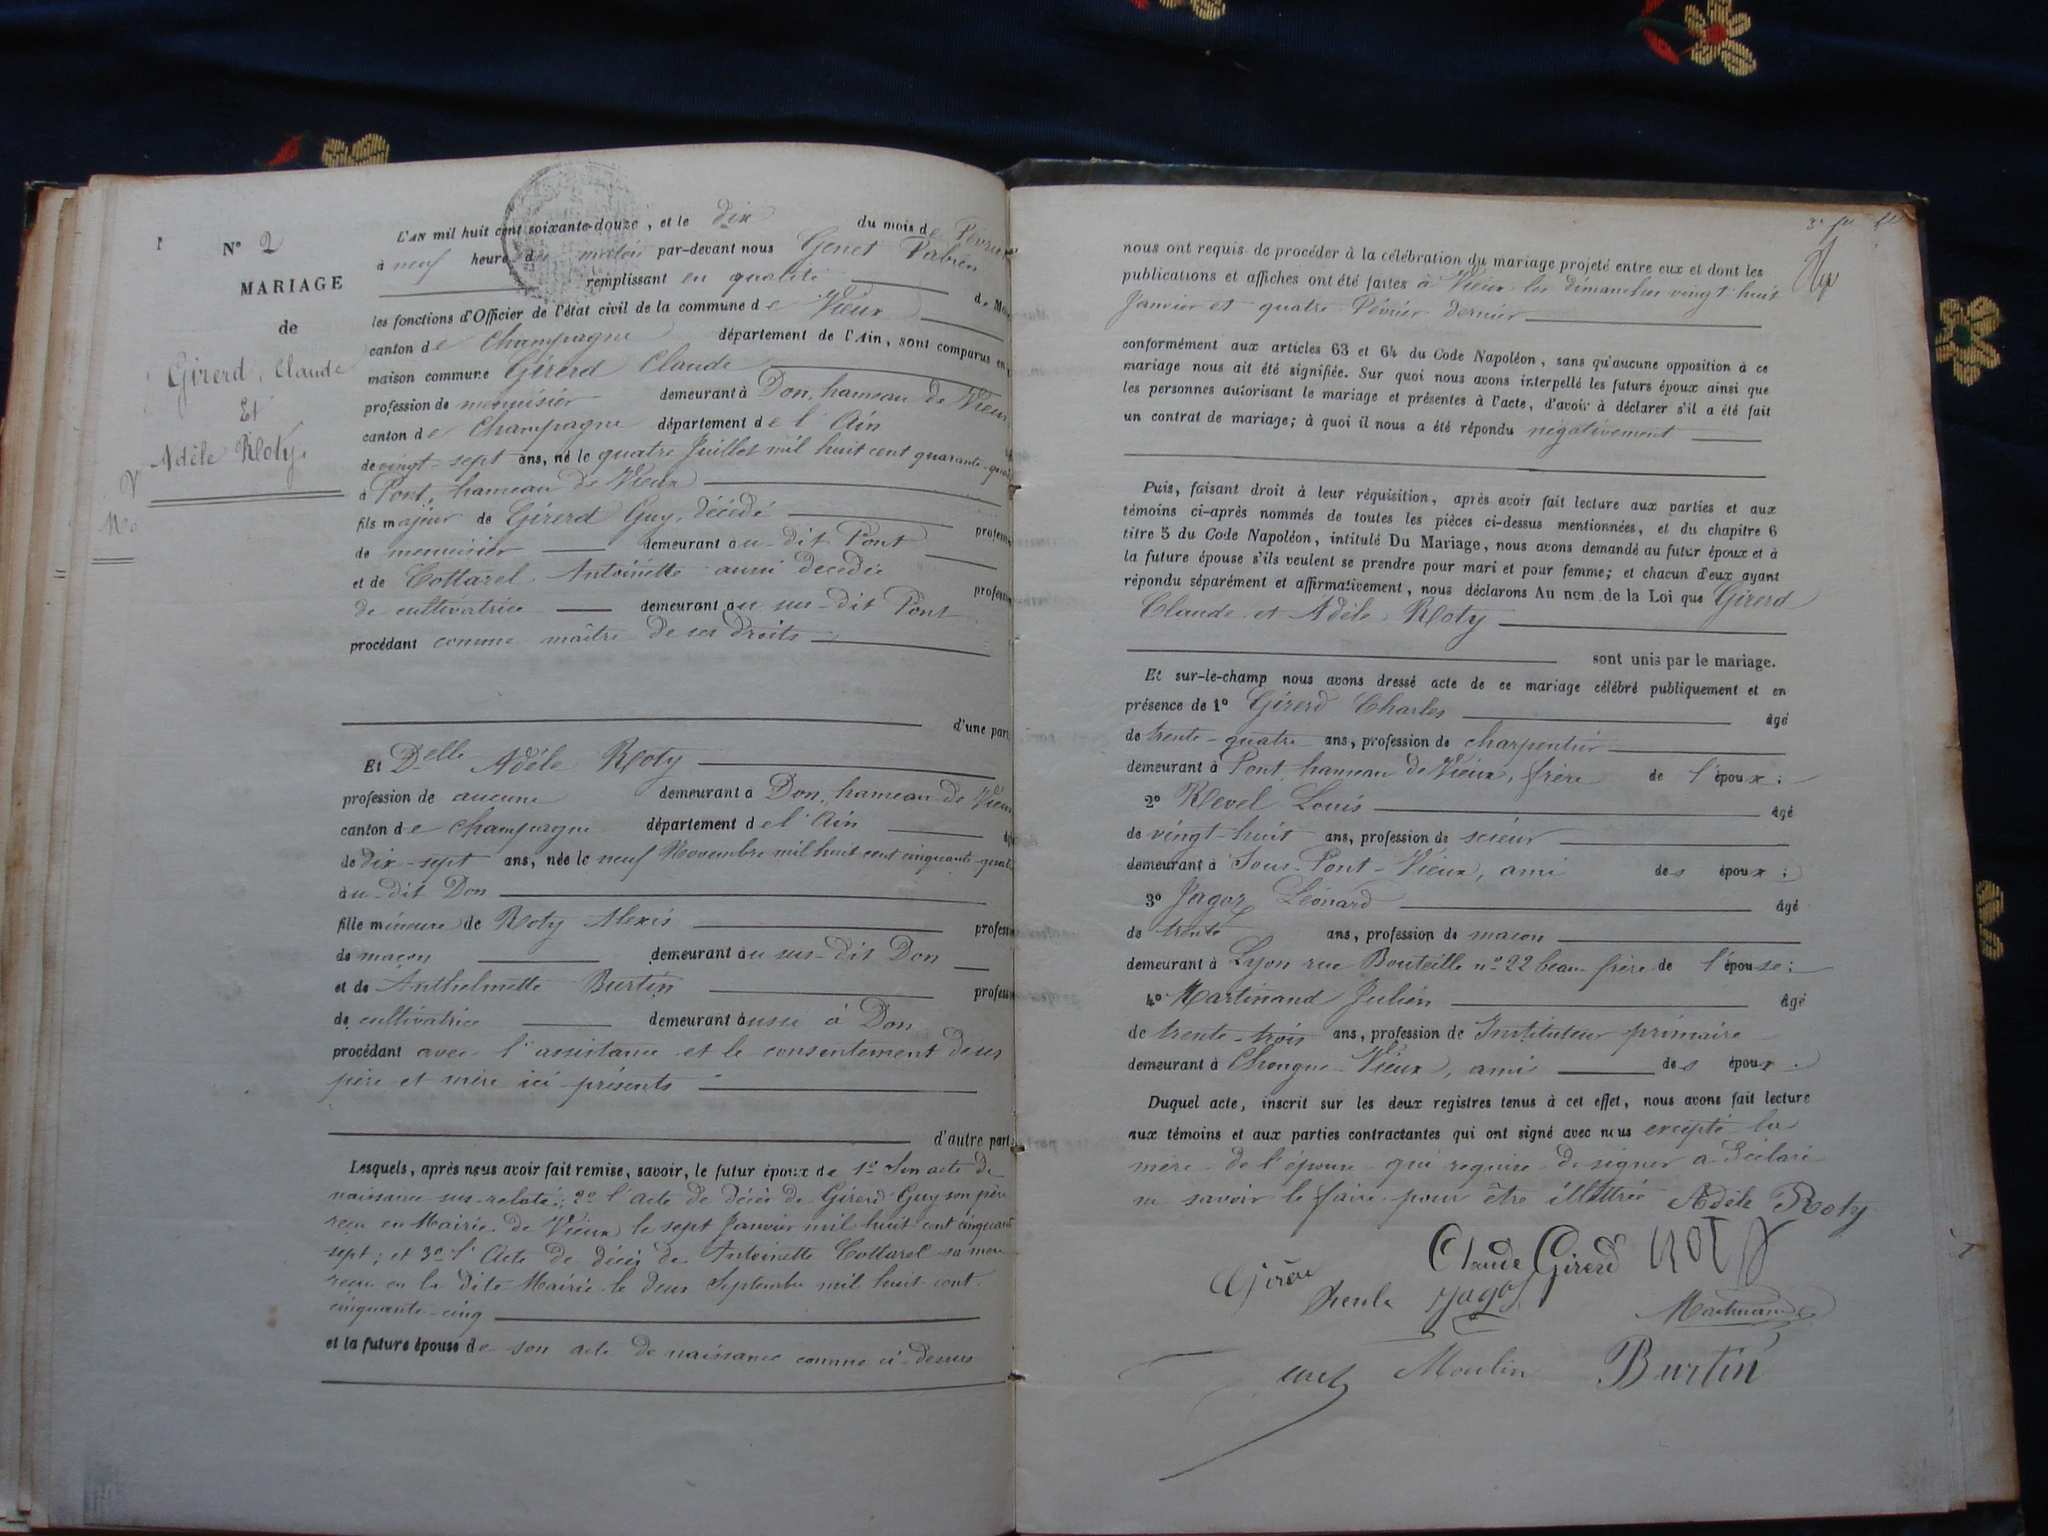 N° 2
MARIAGE
de
Girerd, Claude
Et
Adèle Roty
L'AN mil huit cent soixante-douze, et le dix du mois de Févrie
à neuf heure du matin par-devant nous Genet Fabien
remplissant en qualité de M
les fonctions d'Officier de l'état civil de la commune de Vieux
canton de Champagne département de l'Ain, sont comparus en
maison commune Girerd Claude
profession de menuisier demeurant à Don, hameau de Vieux
canton de Champagne département de l'Ain
de vingt-sept ans, né le quatre Juillet mil huit cent quarante-quat
à Pont, hameau de Vieux
fils majeur de Girerd Guy, décédé
profess
de menuisier demeurant au-dit Pont
et de Cottarel Antoinette aussi décédée
professi
de cultivatrice demeurant au sus-dit Pont
procédant comme maître de ses droits
d'une part
Et Delle Adèle Roty
profession de aucune demeurant à Don, hameau de Vieux
canton de Champagne département de l'Ain
de dix-sept ans, née le neuf Novembre mil huit cent cinquante-quat
au-dit Don
fille mineure de Roty Alexis profess
de maçon demeurant au sus-dit Don
et de Anthelmette Burtin profess
de cultivatrice demeurant aussi à Don
procédant avec l'assistance et le consentement de ses
père et mère ici présents
d'autre part
Lesquels, après nous avoir fait remise, savoir, le futur époux de 1° Son acte de
naissance sus-relaté; 2° l'acte de décès de Girerd Guy son père
reçu en Mairie de Vieux le sept Janvier mil huit cent cinquante
sept; et 3° l'Acte de décès de Antoinette Cottarel sa mère
reçu en la dite Mairie le deux Septembre mil huit cent
cinquante-cinq
et la future épouse de son acte de naissance comme ci-dessus
nous ont requis de procéder à la célébration du mariage projeté entre eux et dont les
publications et affiches ont été faites à Vieux les dimanches vingt-huit
Janvier et quatre Février dernier
conformément aux articles 63 et 64 du Code Napoléon, sans qu'aucune opposition à ce
mariage nous ait été signifiée. Sur quoi nous avons interpellé les futurs époux ainsi que
les personnes autorisant le mariage et présentes à l'acte, d'avoir à déclarer s'il a été fait
un contrat de mariage; à quoi il nous a été répondu négativement
Puis, faisant droit à leur réquisition, après avoir fait lecture aux parties et aux
témoins ci-après nommés de toutes les pièces ci-dessus mentionnées, et du chapitre 6
titre 5 du Code Napoléon, intitulé Du Mariage, nous avons demandé au futur époux et à
la future épouse s'ils veulent se prendre pour mari et pour femme; et chacun d'eux ayant
répondu séparément et affirmativement, nous déclarons Au nom de la Loi que Girerd
Claude et Adèle Roty
sont unis par le mariage.
Et sur-le-champ nous avons dressé acte de ce mariage célébré publiquement et en
présence de 1° Girerd Charles âgé
de trente-quatre ans, profession de charpentier
demeurant à Pont hameau de Vieux, frère de l'époux;
2° Revel Louis âgé
de vingt-huit ans, profession de scieur
demeurant à Sous-Pont-Vieux, ami des époux;
3° Jagoz Léonard âgé
de trente ans, profession de maçon
demeurant à Lyon rue Bouteille n° 22 beau-frère de l'épouse;
4° Martinand Julien âgé
de trente-trois ans, profession de Instituteur primaire
demeurant à Chongne-Vieux, ami des époux.
Duquel acte, inscrit sur les deux registres tenus à cet effet, nous avons fait lecture
aux témoins et aux parties contractantes qui ont signé avec nous excepté la
mère de l'épouse qui requise de signer a déclaré
ne savoir le faire pour être illettrée Adèle Roty
Claude Girerd ROTY
Jagoz Martinand
Moulin Burtin